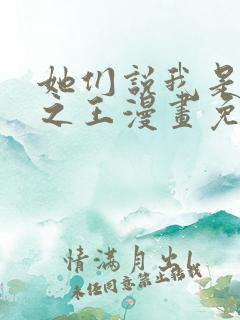 她们説我是
之王漫畫免
情滿月出l
未经同意禁止转载